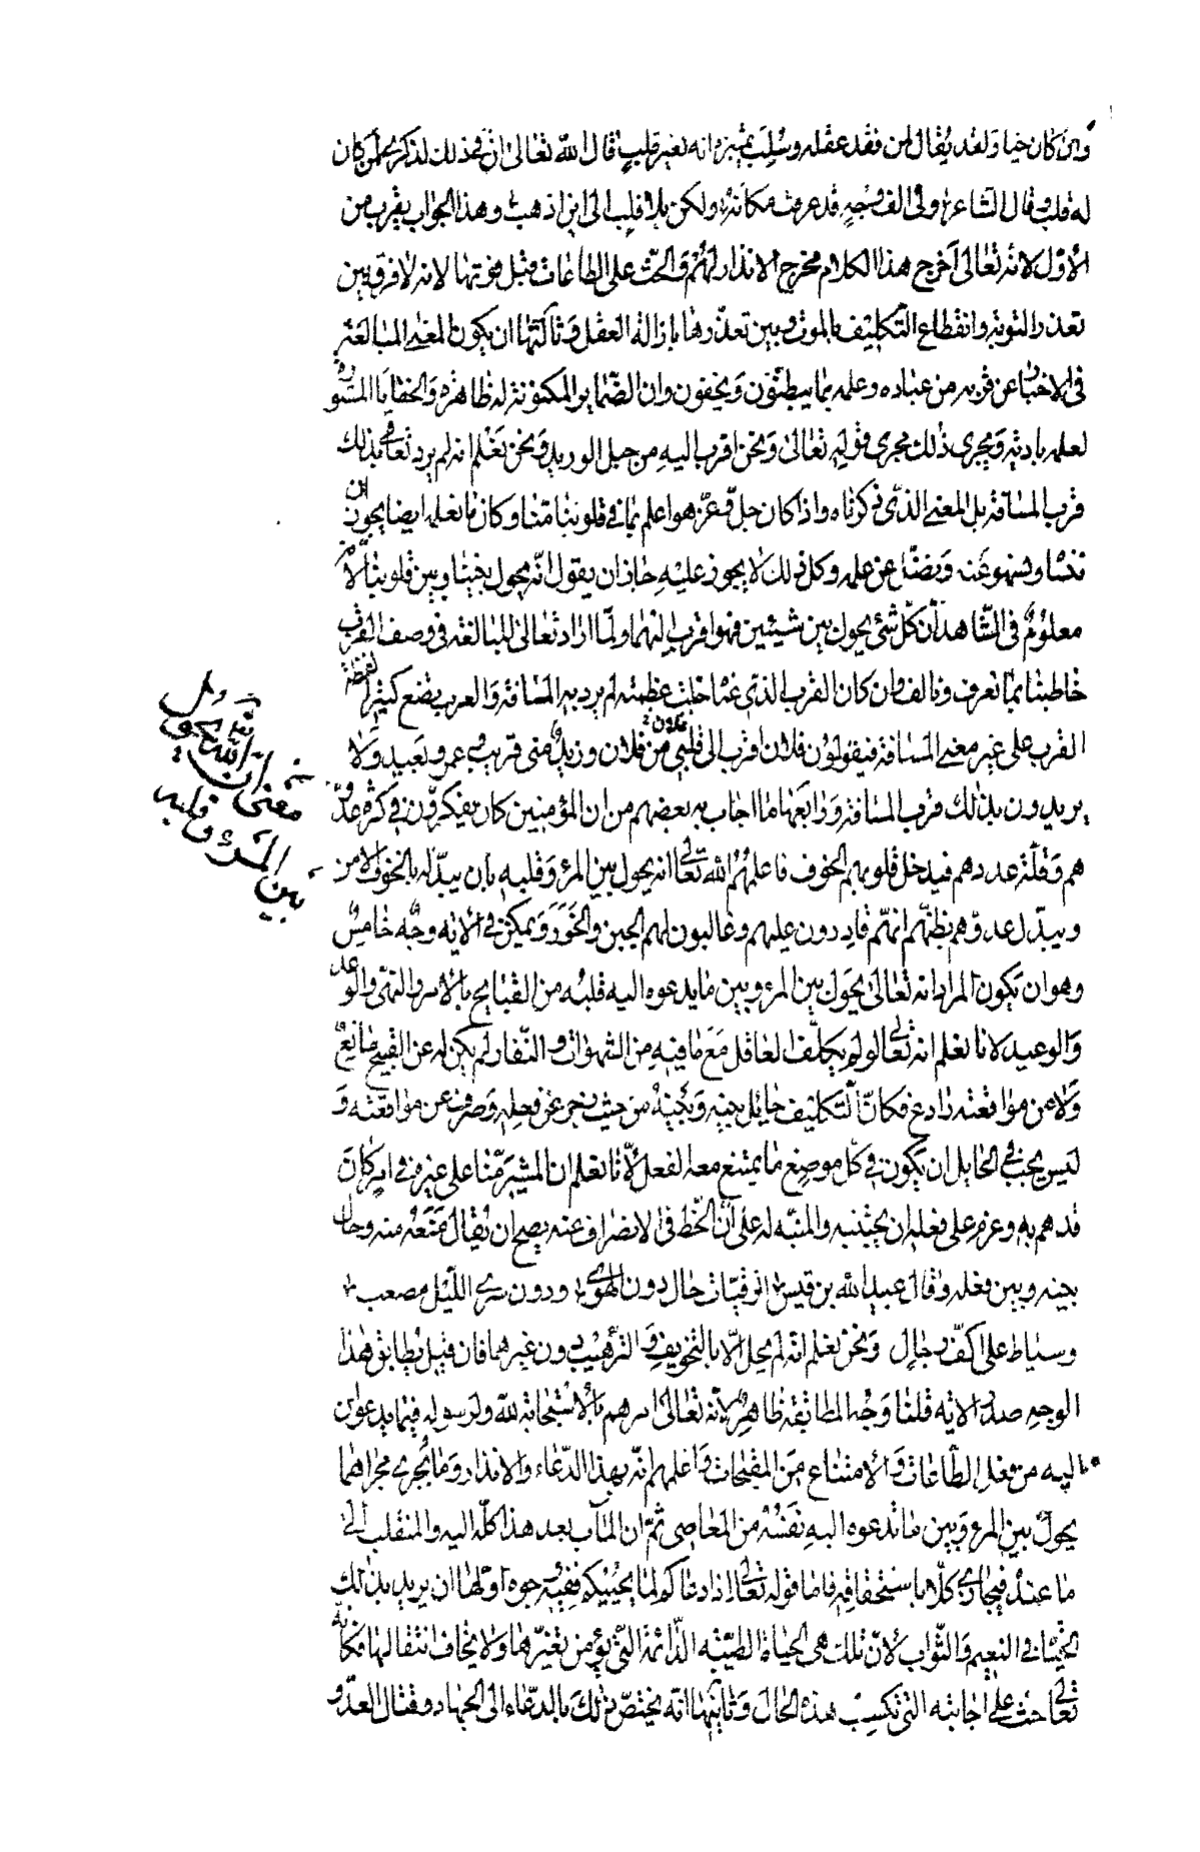 وان كان حيا ولقد يقال لمن فقد عقله وسلب تميزه انه بغير قلب قال الله تعالى ان في ذلك لذكرى لمن كان
له قلب وقال الشاعر ولى الف وجه قد عرفت مكانه ولكن بلا قلب الى اين اذهب وهذا الجواب يقرب من
الأول لانه تعالى اخرج هذا الكلام مخرج الانذار لهم والحث على الطاعات قبل فوتها لانه لا فرق بين
تعذر التوبة وانقطاع التكليف بالموت وبين تعذرها بازالة العقل وثالثها ان يكون المعنى المبالغة
في الاخبار عن قربه من عباده وعلمه بما يبطنون ويخفون وان الضماير المكنونة له ظاهرة والخفايا المستورة
لعلمه بادية ويجرى ذلك مجرى قوله تعالى ونحن اقرب اليه من حبل الوريد ونحن نعلم انه لم يرد تعالى بذلك
قرب المسافة بل المعنى الذى ذكرناه واذا كان جل وعز هو اعلم بما في قلوبنا منا وكان ما نعلمه ايضا يجوز ان
ننساه ونسهو عنه ونضل عن علمه وكل ذلك لا يجوز عليه جاز ان يقول انه يحول بيننا وبين قلوبنا لانه
معلوم في الشاهد ان كل شئ يحول بين شيئين فهو اقرب اليهما ولما اراد تعالى المبالغة في وصف القرب
خاطبنا بما نعرف ونالف وان كان القرب الذى عناه جلت عظمته لم يرد به المسافة والعرب يضع كثيرا لفظة
القرب على غير معنى المسافة فيقولون فلان اقرب الى قلبي من فلان وزيد منى قريب وعمرو بعيد ولا
يريدون بذلك قرب المسافة ورابعها ما اجاب به بعضهم من ان المؤمنين كان يفكرون في كثرة عدو
هم وقلة عددهم فيدخل قلوبهم الخوف فاعلمهم الله تعالى انه يحول بين المرء وقلبه بان يبدله بالخوف الامن
ويبدل عدوهم بظنهم انهم قادرون عليهم وغالبون لهم الجبن والخور ويمكن في الآية وجه خامس
وهو ان يكون المراد انه تعالى يحول بين المرء وبين ما يدعوه اليه قلبه من القبايح بالامر والنهى والوعد
والوعيد لانا نعلم انه تعالى لو لم يكلف العاقل مع ما فيه من الشهوات والنفار لم يكن له عن القبيح مانع
ولا عن مواقعته رادع فكان التكليف حايل بينه وبينه من حيث زجر عن فعله وصرف عن مواقعته و
ليس يجب في الحايل ان يكون في كل موضع ما يمتنع معه الفعل لانا نعلم ان المشير منا على غيره في امر كان
قد هم به وعزم على فعله ان يجتنبه والمنبه له على ان الحظ في الانصراف عنه يصح ان يقال منعه منه وحال
بينه وبين فعله وقال عبيد الله بن قيس الرقيات حال دون الهوى ودون سرى الليل مصعب
وسياط على اكف رجال ونحن نعلم انه لم يحل الا بالتخويف والترهيب دون غيرهما فان قيل يطابق هذا
الوجه صدر الاية قلنا وجه المطابقة ظاهر لانه تعالى امرهم بالاستجابة لله ولرسوله فيما يدعوان
اليه من فعل الطاعات والامتناع من المقبحات واعلمهم انه بهذا الدعاء والانذار وما يجرى مجراهما
يحول بين المرء وبين ما تدعوه اليه نفسه من المعاصي ثم ان المآب بعد هذا كله اليه والمنقلب الى
ما عنده فيجازى كلا باستحقاقه فاما قوله تعالى اذا دعاكم لما يحييكم ففيه وجوه اولها ان يريد بذلك
الحياة في النعيم والثواب لان تلك هي الحياة الطيبة الدائمة التي يؤمن تغيرها ولا يخاف انتقالها فكانه
تعالى حث على اجابته التى تكسب هذه الحال وثانيها انه يختص ذلك بالدعاء الى الجهاد وقتال العدو
معنى ان الله يحول
بين المرء وقلبه